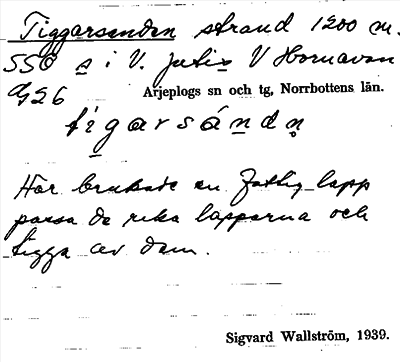 Tiggarsanden strand 1200 m.
SSO s i V. Jutis V Hornavan
Arjeplogs sn och tg, Norrbottens län.
tigarsándn
Här brukade en fattig lapp
passa de rika lapparna och
tigga av dem.
Sigvard Wallström, 1939.